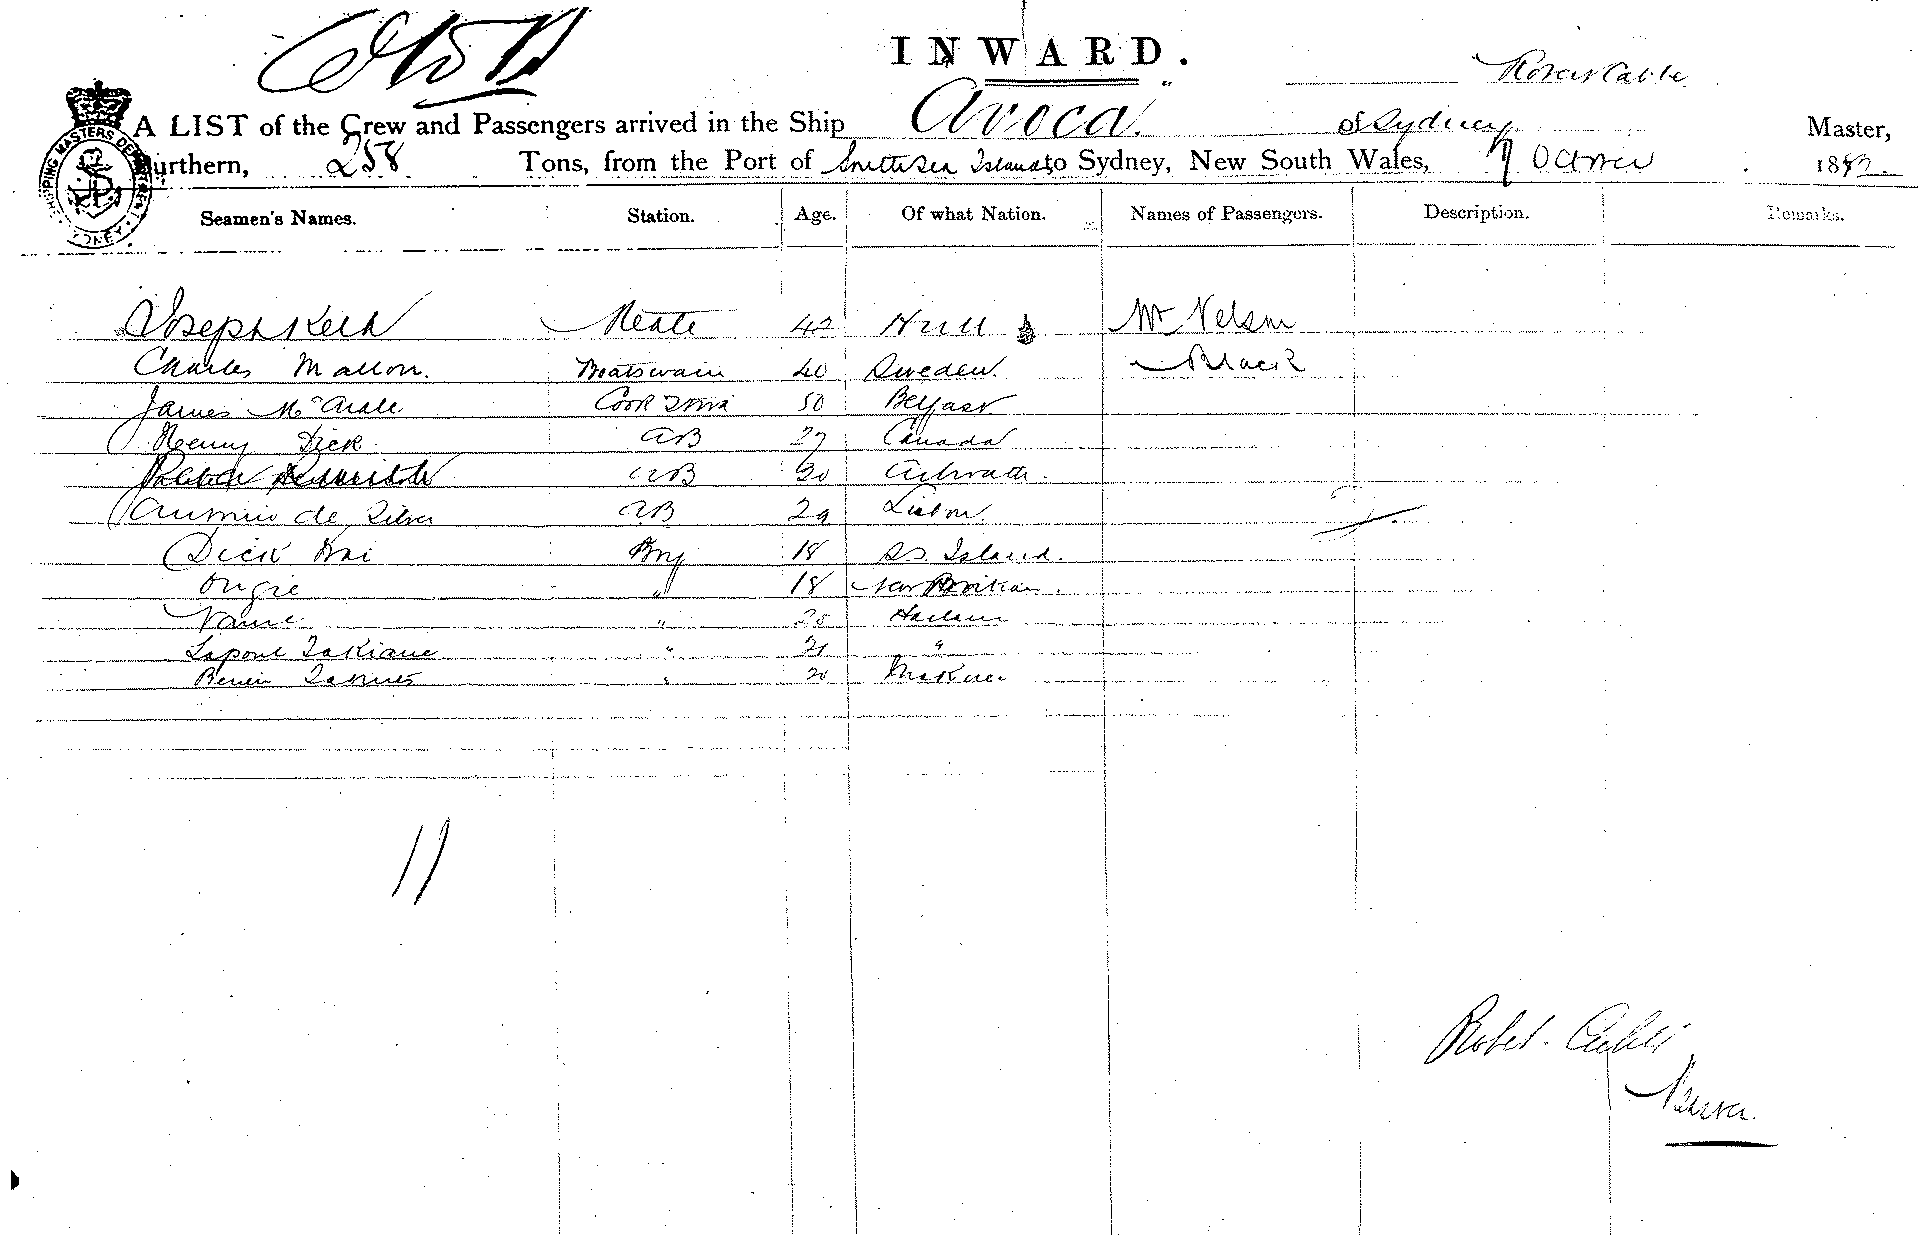 INWARD.
Robert Cable
A LIST of the Crew and Passengers arrived in the Ship Avoca of Sydney Master,
Burthern, 258 Tons, from the Port of South Sea Islands to Sydney, New South Wales, 9 October 189
SHIPPING MASTERS DEPARTMENT SYDNEY
Seamen's Names. Station. Age. Of what Nation. Names of Passengers. Description. Remarks.
Joseph Mate 42 Hull Mr Nelson
Charles Mallon. Boatswain 40 Sweden. " Black
James Cook 50 Belfast
Henry Dick AB 27 Canada
AB 30
Antonio de Silva AB 29 Lisbon.
Dick Boy 18 S.S. Island.
Ongie " 18 New Britain.
" 20
" 21 "
" 20
11
Robt. Cable
Master